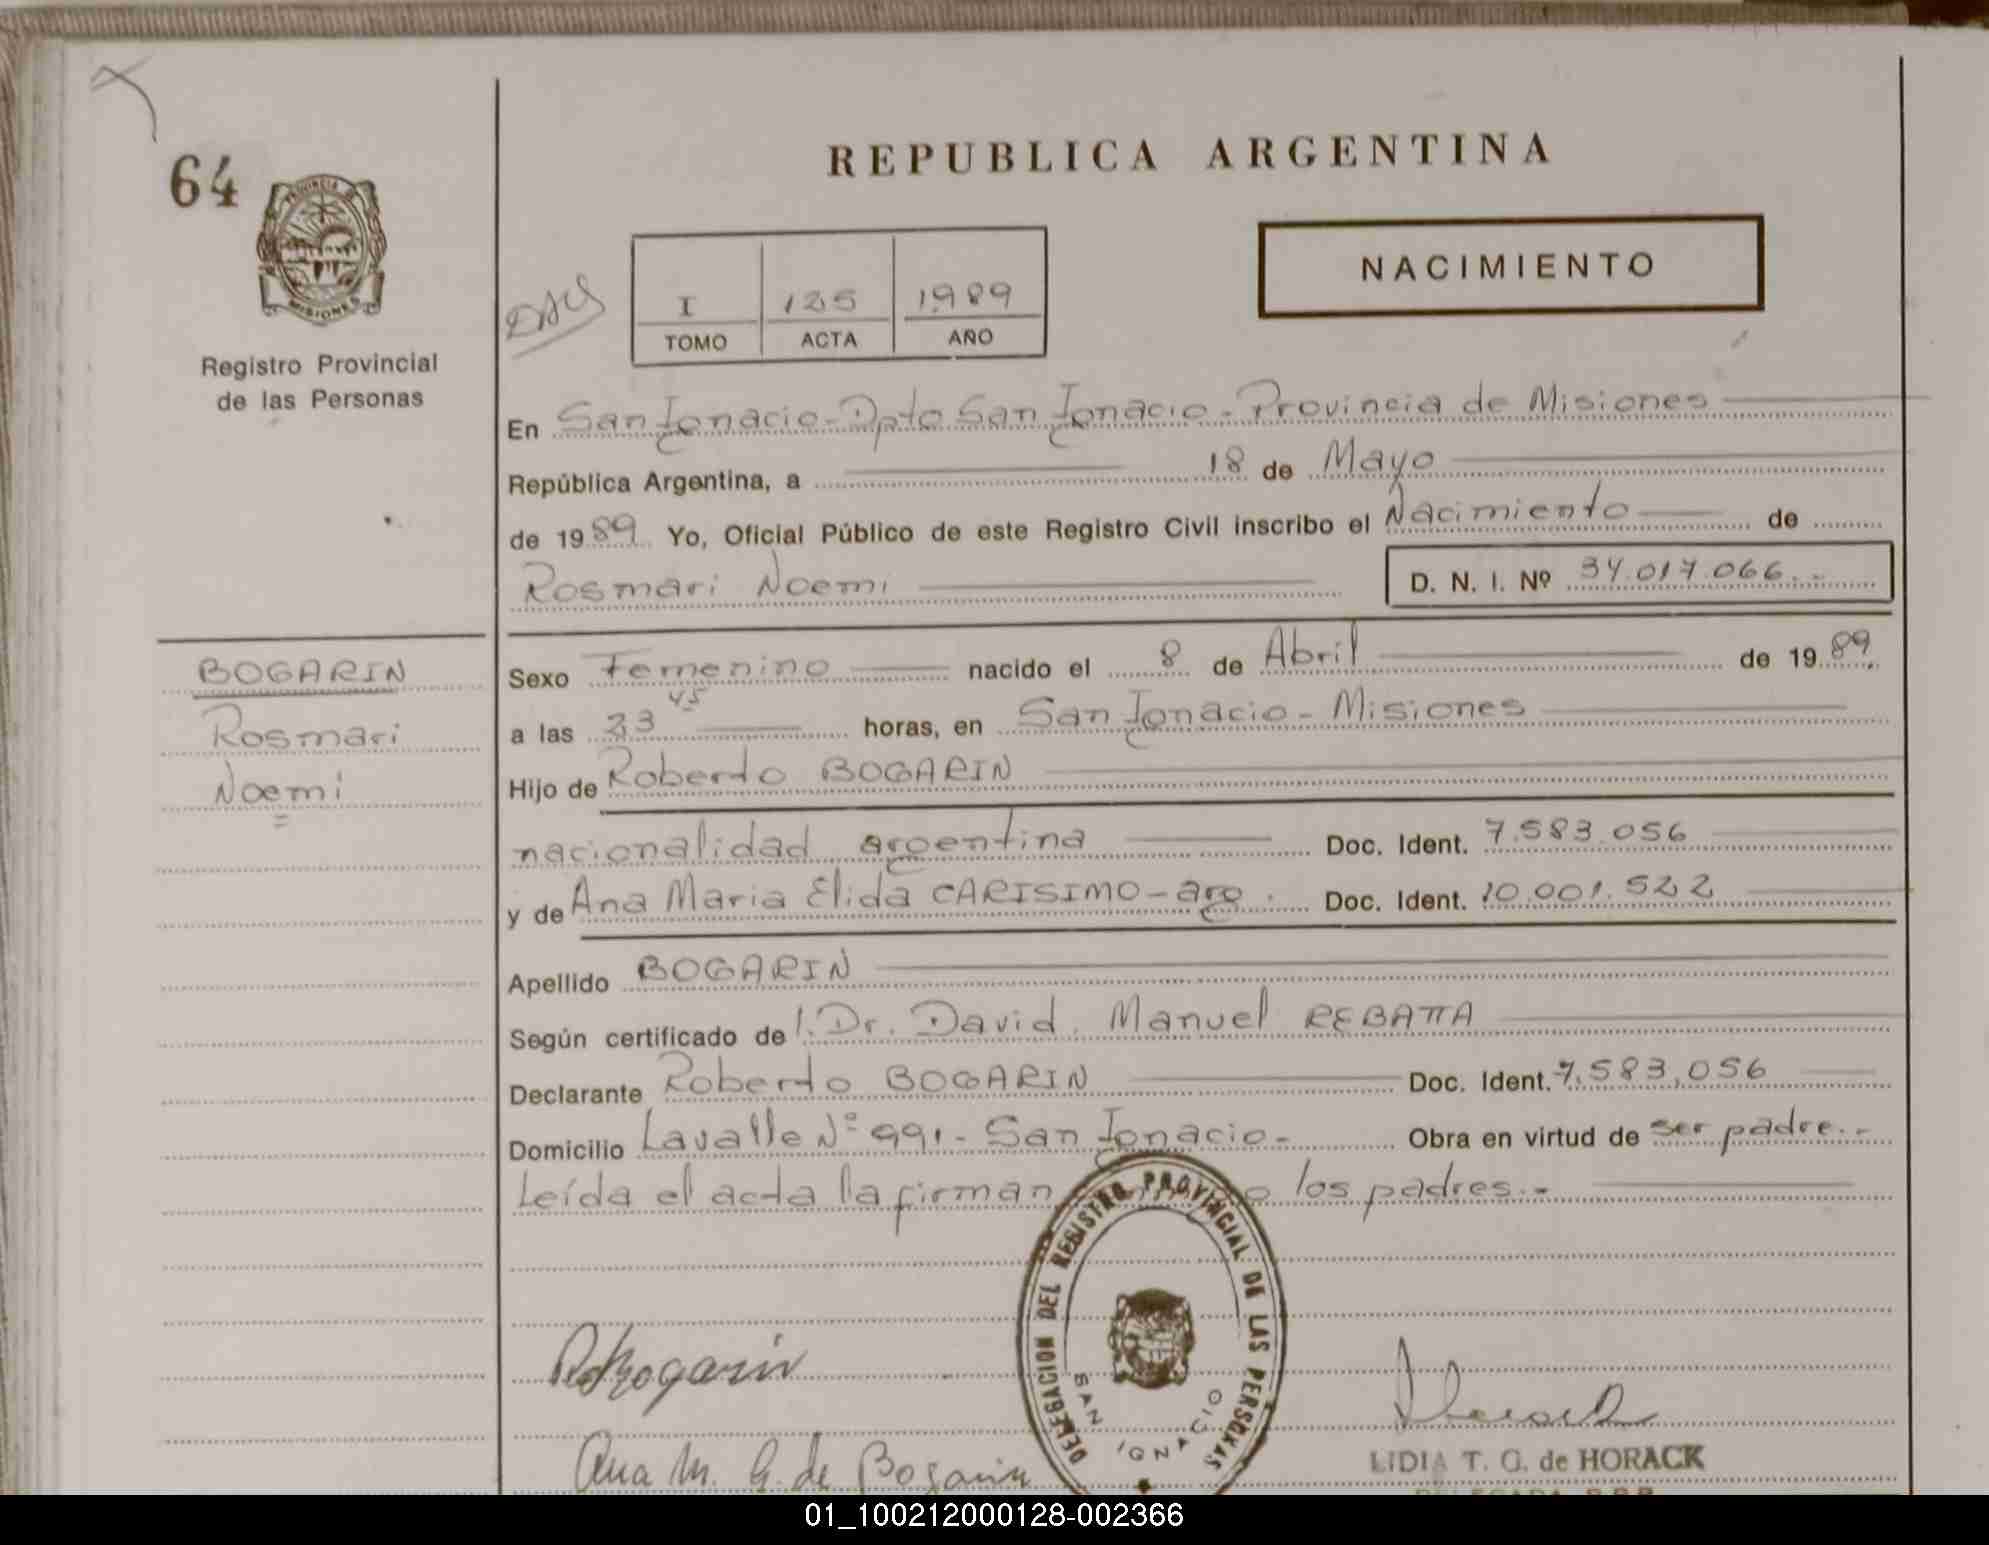 64
PROVINCIA DE
MISIONES
Registro Provincial
de las Personas
REPUBLICA ARGENTINA
NACIMIENTO
I 125 1989
TOMO ACTA AÑO
En San Ignacio - Dpto San Ignacio - Provincia de Misiones
República Argentina, a 18 de Mayo
de 1989 Yo, Oficial Público de este Registro Civil inscribo el Nacimiento de
Rosmari Noemi D. N. I. Nº 34.017.066.-
BOGARIN
Rosmari
Noemi
Sexo Femenino nacido el 8 de Abril de 1989
a las 23 45 horas, en San Ignacio - Misiones
Hijo de Roberto BOGARIN
nacionalidad argentina Doc. Ident. 7.583.056
y de Ana Maria Elida CARISIMO - arg. Doc. Ident. 10.001.522
Apellido BOGARIN
Según certificado de l. Dr. David Manuel REBATTA
Declarante Roberto BOGARIN Doc. Ident. 7.583.056
Domicilio Lavalle Nº 991 - San Ignacio - Obra en virtud de ser padre.-
Leída el acta la firman los padres.-
DELEGACION DEL REGISTRO PROVINCIAL DE LAS PERSONAS
SAN IGNACIO
Bogarin
Ana M. G. de Bogarin
LIDIA T. G. de HORACK
01_100212000128-002366